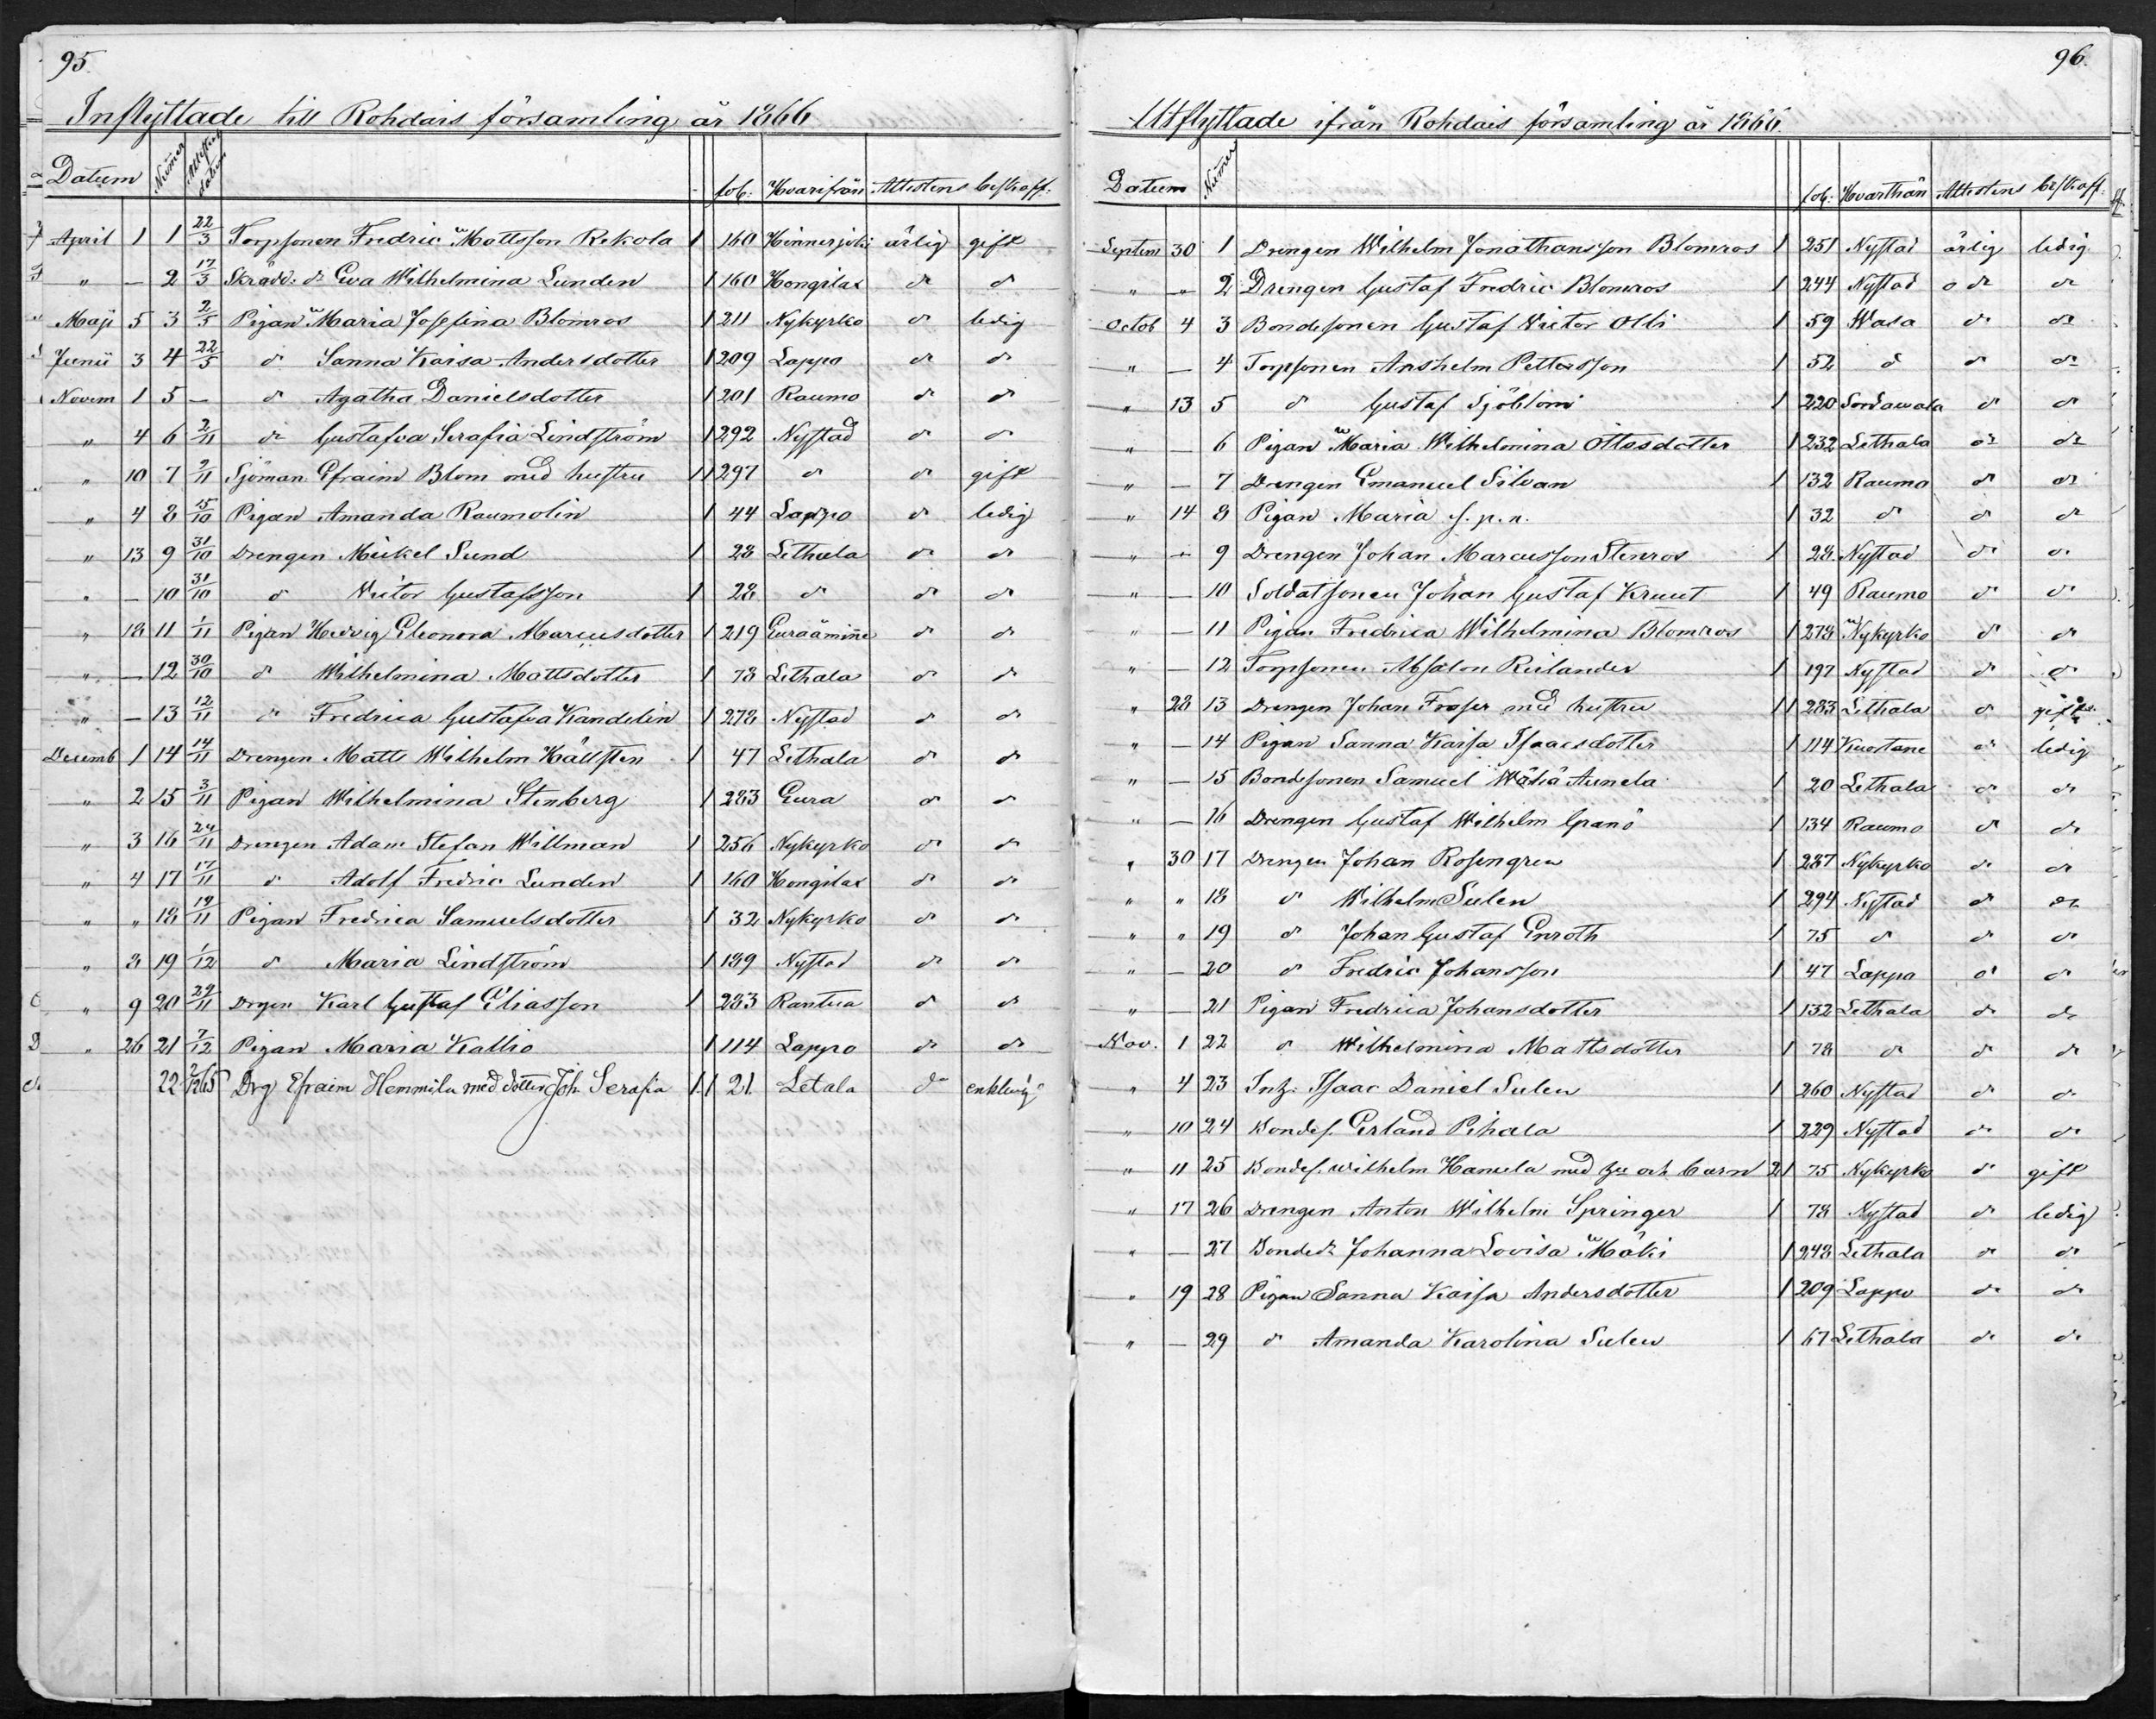 95.
Inflyttade till Rohdais församling år 1866
Datum Numer Attestens datum fol: Hvarifrån Attestens beskaff:
April 1 1 22/3 Torpsonen Fredric Mattsson Rekola 1 160 Hinnerjoki ärlig gift
" — 2 17/3 Skrädd: dr Eva Wilhelmina Lunden 1 160 Hongilax dr d
Maji 5 3 2/5 Pigan Maria Josefina Blomros 1 211 Nykyrko dr ledig
Junii 3 4 22/5 dr Sanna Kaisa Andersdotter 1 209 Lappo dr dr
Novem 1 5 — dr Agatha Danielsdotter 1 201 Raumo dr dr
" 4 6 2/11 dr Gustafva Serafia Lindström 1 292 Nystad dr dr
" 10 7 9/11 Sjöman Efraim Blom med hustru 1 1 297 dr dr gift
" 4 8 15/10 Pigan Amanda Raumolin 1 44 Lappo dr ledig
" 13 9 31/10 Drengen Mickel Sund 1 28 Lethala dr dr
" — 10 31/10 dr Victor Gustafsson 1 28 dr dr dr
" 18 11 1/11 Pigan Hedvig Eleonora Marcusdotter 1 219 Euraåminne dr dr
" — 12 30/10 dr Wilhelmina Mattsdotter 1 78 Lethala dr dr
" — 13 12/11 dr Fredrica Gustafva Kandelin 1 278 Nystad dr dr
Decemb 1 14 14/11 Drengen Matts Wilhelm Hällsten 1 47 Lethala dr dr
" 2 15 3/11 Pigan Wilhelmina Stenberg 1 283 Eura dr dr
" 3 16 24/11 Drengen Adam Stefan Willman 1 256 Nykyrko dr dr
" 4 17 17/11 dr Adolf Fredric Lunden 1 160 Hongilax dr dr
" " 18 19/11 Pigan Fredrica Samuelsdotter 1 32 Nykyrko dr dr
" 8 19 1/12 dr Maria Lindström 1 189 Nystad dr dr
" 9 20 29/11 Drgen Karl Gustaf Eliasson 1 283 Rantua dr dr
" 26 21 7/12 Pigan Maria Kallio 1 114 Lappo dr dr
22 2/12 65 Drg Efraim Hemmila med dotter Joh. Serafia 1. 1 21. Letala do enkling
96.
Utflyttade ifrån Rohdais församling år 1866.
Datum Numer fol: Hvarthän Attestens beskaff:
Septem 30 1 Drengen Wilhelm Jonathansson Blomros 1 251 Nystad ärlig ledig
" " 2 Drengen Gustaf Fredric Blomros 1 244 Nystad dr dr
Octob 4 3 Bondesonen Gustaf Victor Olli 1 59 Wasa dr dr
" — 4 Torpsonen Anshelm Pettersson 1 52 d dr dr
" 13 5 dr Gustaf Sjöblom 1 220 Sordawala dr dr
" — 6 Pigan Maria Wilhelmina Ottosdotter 1 232 Lethala dr dr
" — 7 Drengen Emanuel Silvan 1 132 Raumo dr dr
" 14 8 Pigan Maria s. p. n. 1 32 dr dr dr
" — 9 Drengen Johan Marcusson Stenros 1 28 Nystad dr dr
" — 10 Soldatsonen Johan Gustaf Kruut 1 49 Raumo dr dr
" — 11 Pigan Fredrica Wilhelmina Blomros 1 278 Nykyrko dr dr
" — 12 Torpsonen Absalon Rielander 1 197 Nystad dr dr
" 28 13 Drengen Johan Fraser med hustru 1 1 283 Lethala dr gift
" — 14 Pigan Sanna Kaisa Isaacsdotter 1 114 Kuortane dr ledig
" — 15 Bondesonen Samuel Wähä Aunela 1 20 Lethala dr dr
" — 16 Drengen Gustaf Wilhelm Granö 1 134 Raumo dr dr
" 30 17 Drengen Johan Rosengren 1 287 Nykyrko dr dr
" " 18 dr Wilhelm Sulen 1 294 Nystad dr dr
" " 19 dr Johan Gustaf Enroth 1 75 dr dr dr
" — 20 dr Fredric Johansson 1 47 Lappo dr dr
" — 21 Pigan Fredrica Johansdotter 1 132 Lethala dr dr
Nov. 1 22 dr Wilhelmina Mattsdotter 1 78 dr dr dr
" 4 23 Inh: Isaac Daniel Sulen 1 260 Nystad dr dr
" 10 24 Bondes. Erland Pihala 1 229 Nystad dr dr
" 11 25 Bondes. Wilhelm Hanula med hu och barn 2 1 75 Nykyrko dr gift
" 17 26 Drengen Anton Wilhelm Springer 1 78 Nystad dr ledig
" — 27 Bonded: Johanna Lovisa Mäki 1 248 Lethala dr dr
" 19 28 Pigan Sanna Kaisa Andersdotter 1 209 Lappo dr dr
" — 29 dr Amanda Karolina Sulen 1 67 Lethala dr dr